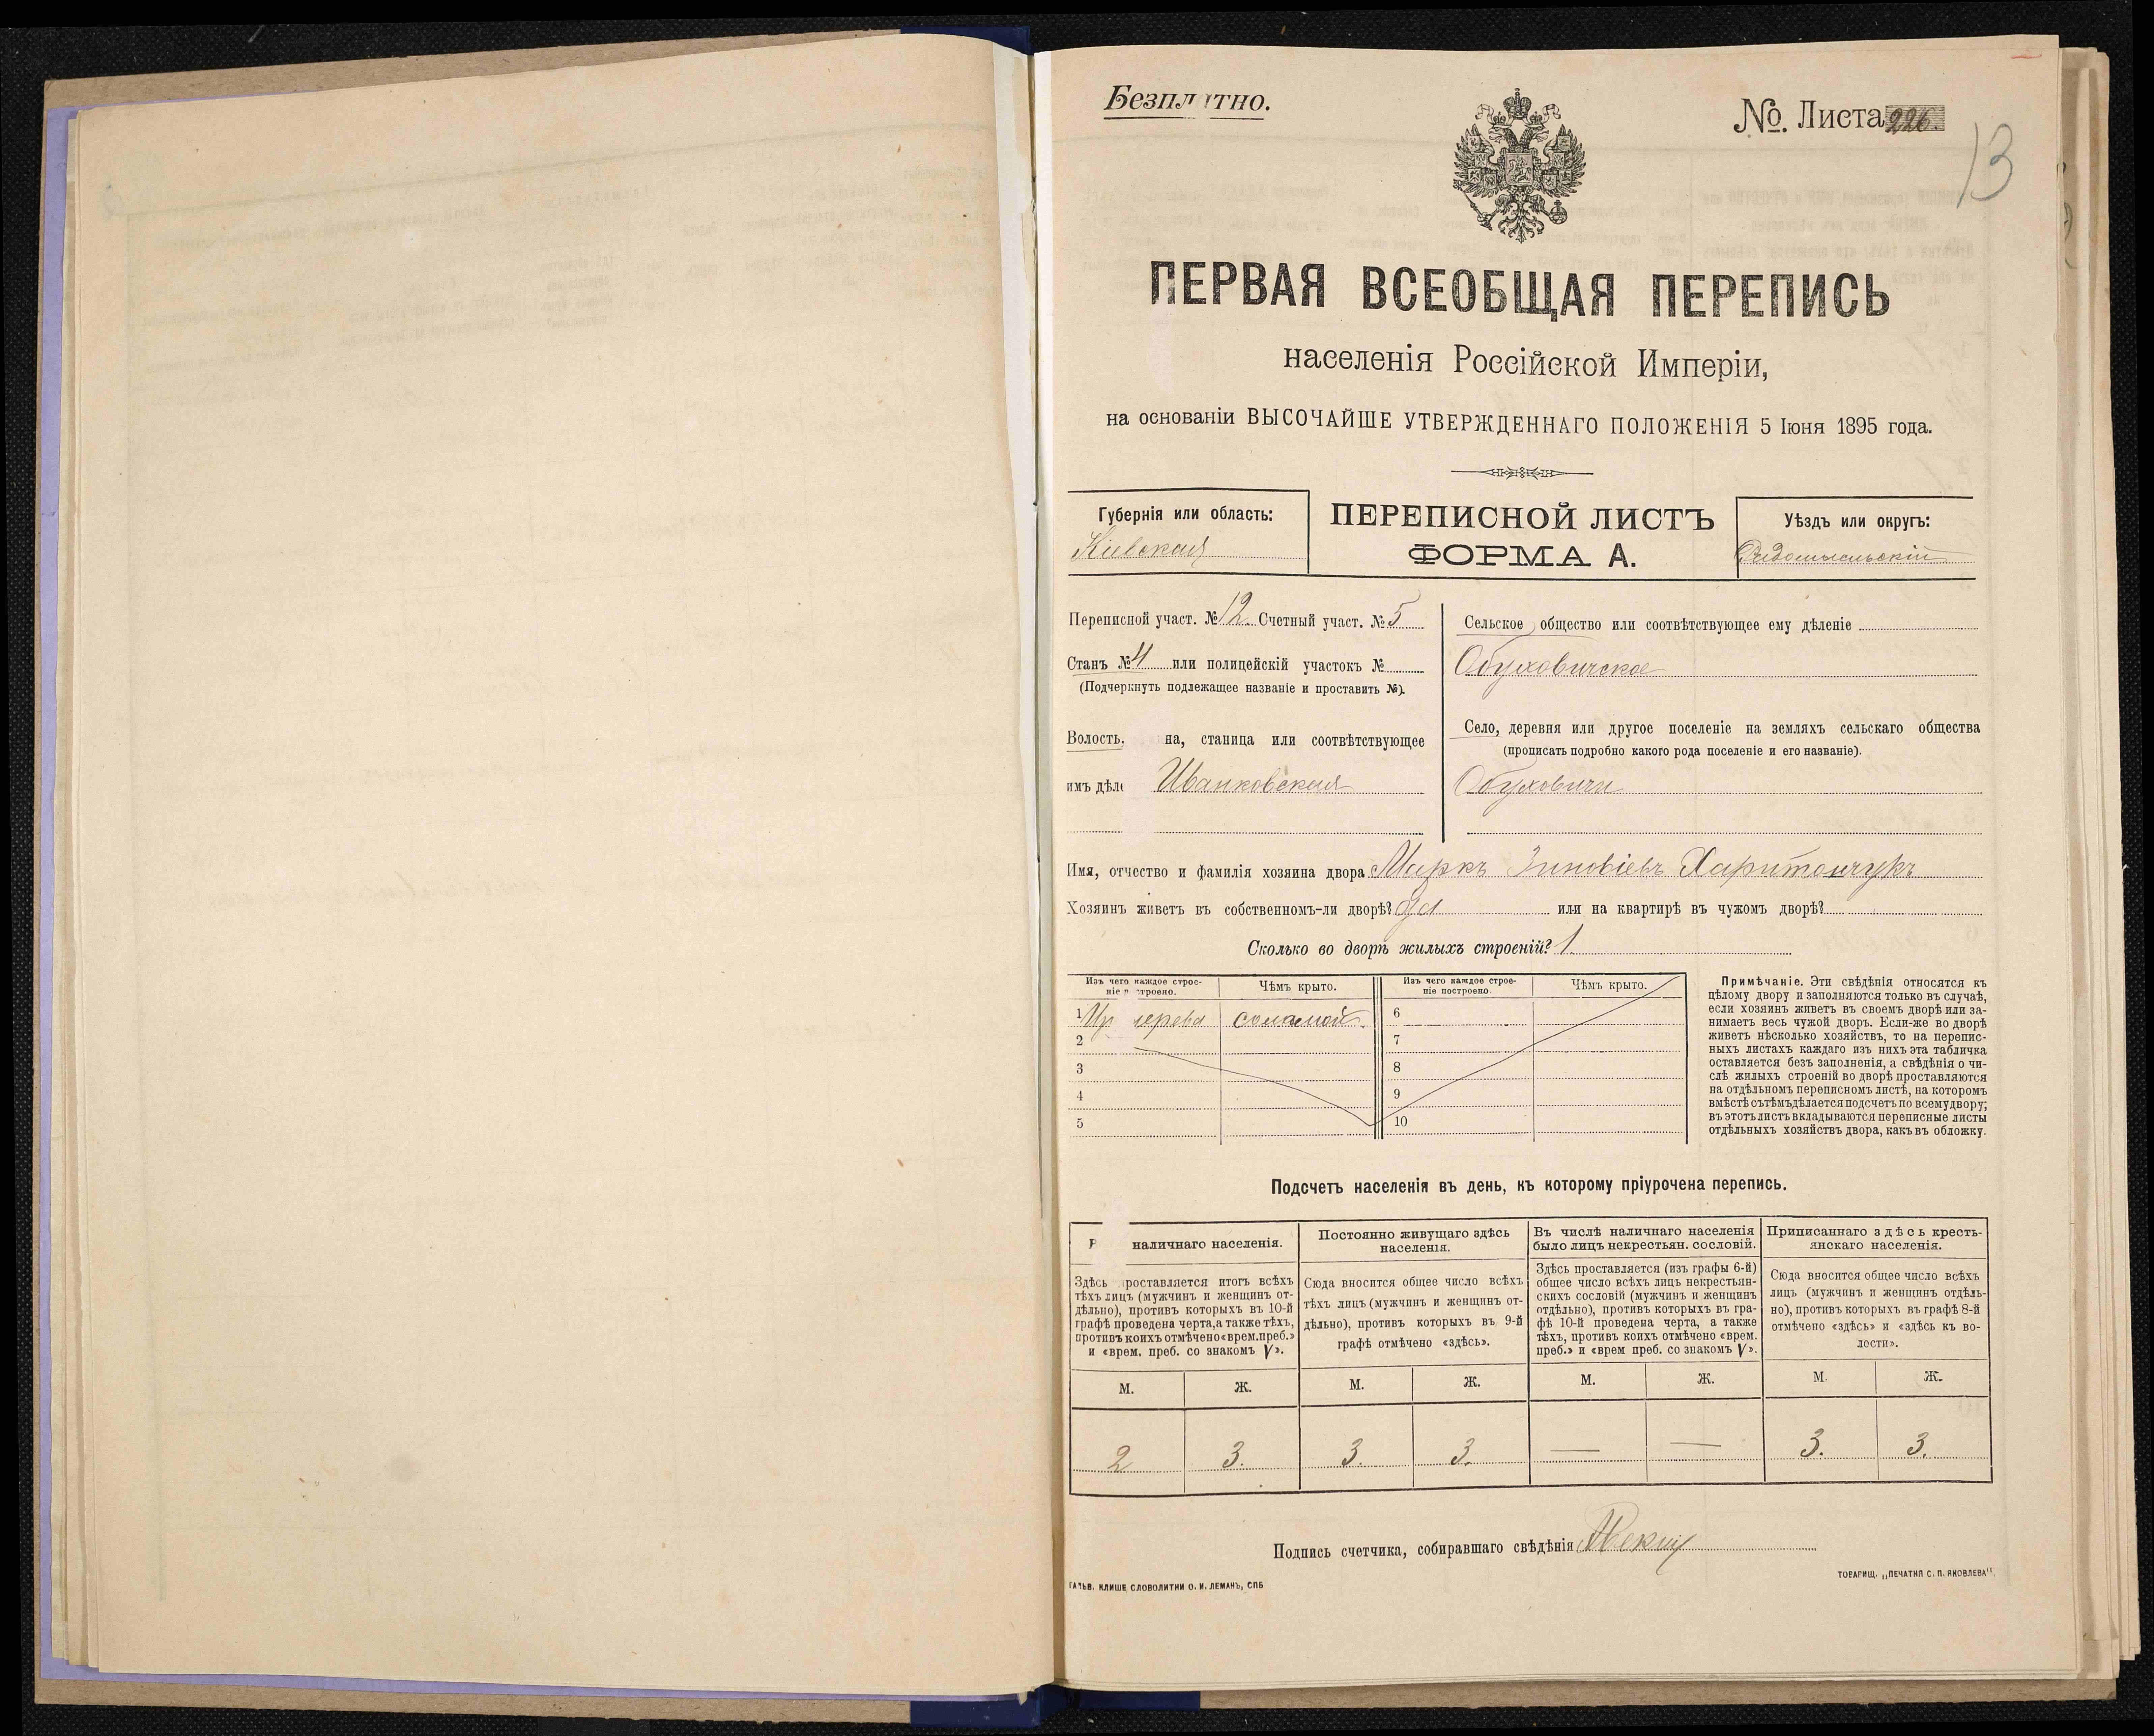 Безпл тно.
№. Листа 226.
13
ПЕРВАЯ ВСЕОБЩАЯ ПЕРЕПИСЬ
населенія Россійской Имперіи,
на основаніи ВЫСОЧАЙШЕ УТВЕРЖДЕННАГО ПОЛОЖЕНІЯ 5 Іюня 1895 года.
Губернія или область:
Кіевская
ПЕРЕПИСНОЙ ЛИСТЪ
ФОРМА А.
Уѣздъ или округъ:
Радомысльскій
Переписной участ. № 12. Счетный участ. № 5
Станъ № 4 или полицейскій участокъ №
(Подчеркнуть подлежащее названіе и проставить №).
Волость. на, станица или соотвѣтствующее
имъ дѣле Иванковская
Сельское общество или соотвѣтствующее ему дѣленіе
Обуховичское
Село, деревня или другое поселеніе на земляхъ сельскаго общества
(прописать подробно какого рода поселеніе и его названіе).
Обуховичи
Имя, отчество и фамилія хозяина двора Маркъ Зиновіевъ Харитончукъ
Хозяинъ живетъ въ собственномъ-ли дворѣ? да или на квартирѣ въ чужомъ дворѣ?
Сколько во дворѣ жилыхъ строеній? 1.
Изъ чего каждое строе-
ніе п троено.
Чѣмъ крыто.
Изъ чего каждое строе-
ніе построено.
Чѣмъ крыто.
1 Из дерева соломой.
2
3
4
5
6
7
8
9
10
Примѣчаніе. Эти свѣдѣнія относятся къ
цѣлому двору и заполняются только въ случаѣ,
если хозяинъ живетъ въ своемъ дворѣ или за-
нимаетъ весь чужой дворъ. Если-же во дворѣ
живетъ нѣсколько хозяйствъ, то на перепис-
ныхъ листахъ каждаго изъ нихъ эта табличка
оставляется безъ заполненія, а свѣдѣнія о чи-
слѣ жилыхъ строеній во дворѣ проставляются
на отдѣльномъ переписномъ листѣ, на которомъ
вмѣстѣ съ тѣмъ дѣлается подсчетъ по всему двору;
въ этотъ листъ вкладываются переписные листы
отдѣльныхъ хозяйствъ двора, какъ въ обложку.
Подсчетъ населенія въ день, къ которому пріурочена перепись.
наличнаго населенія.
Здѣсь проставляется итогъ всѣхъ
тѣхъ лицъ (мужчинъ и женщинъ от-
дѣльно), противъ которыхъ въ 10-й
графѣ проведена черта, а также тѣхъ,
противъ коихъ отмѣчено «врем. преб.»
и «врем. преб. со знакомъ V».
Постоянно живущаго здѣсь
населенія.
Сюда вносится общее число всѣхъ
тѣхъ лицъ (мужчинъ и женщинъ от-
дѣльно), противъ которыхъ въ 9-й
графѣ отмѣчено «здѣсь».
Въ числѣ наличнаго населенія
было лицъ некрестьян. сословій.
Здѣсь проставляется (изъ графы 6-й)
общее число всѣхъ лицъ некрестьян-
скихъ сословій (мужчинъ и женщинъ
отдѣльно), противъ которыхъ въ гра-
фѣ 10-й проведена черта, а также
тѣхъ, противъ коихъ отмѣчено «врем.
преб.» и «врем преб. со знакомъ V».
Приписаннаго здѣсь кресть-
янскаго населенія.
Сюда вносится общее число всѣхъ
лицъ (мужчинъ и женщинъ отдѣль-
но), противъ которыхъ въ графѣ 8-й
отмѣчено «здѣсь» и «здѣсь къ во-
лости».
М. Ж. М. Ж. М. Ж. М. Ж.
2 3. 3. 3. — — 3. 3.
Подпись счетчика, собиравшаго свѣдѣнія
ГАЛЬВ. КЛИШЕ СЛОВОЛИТНИ О. И. ЛЕМАНЪ, СПБ
ТОВАРИЩ. „ПЕЧАТНЯ С. П. ЯКОВЛЕВА".